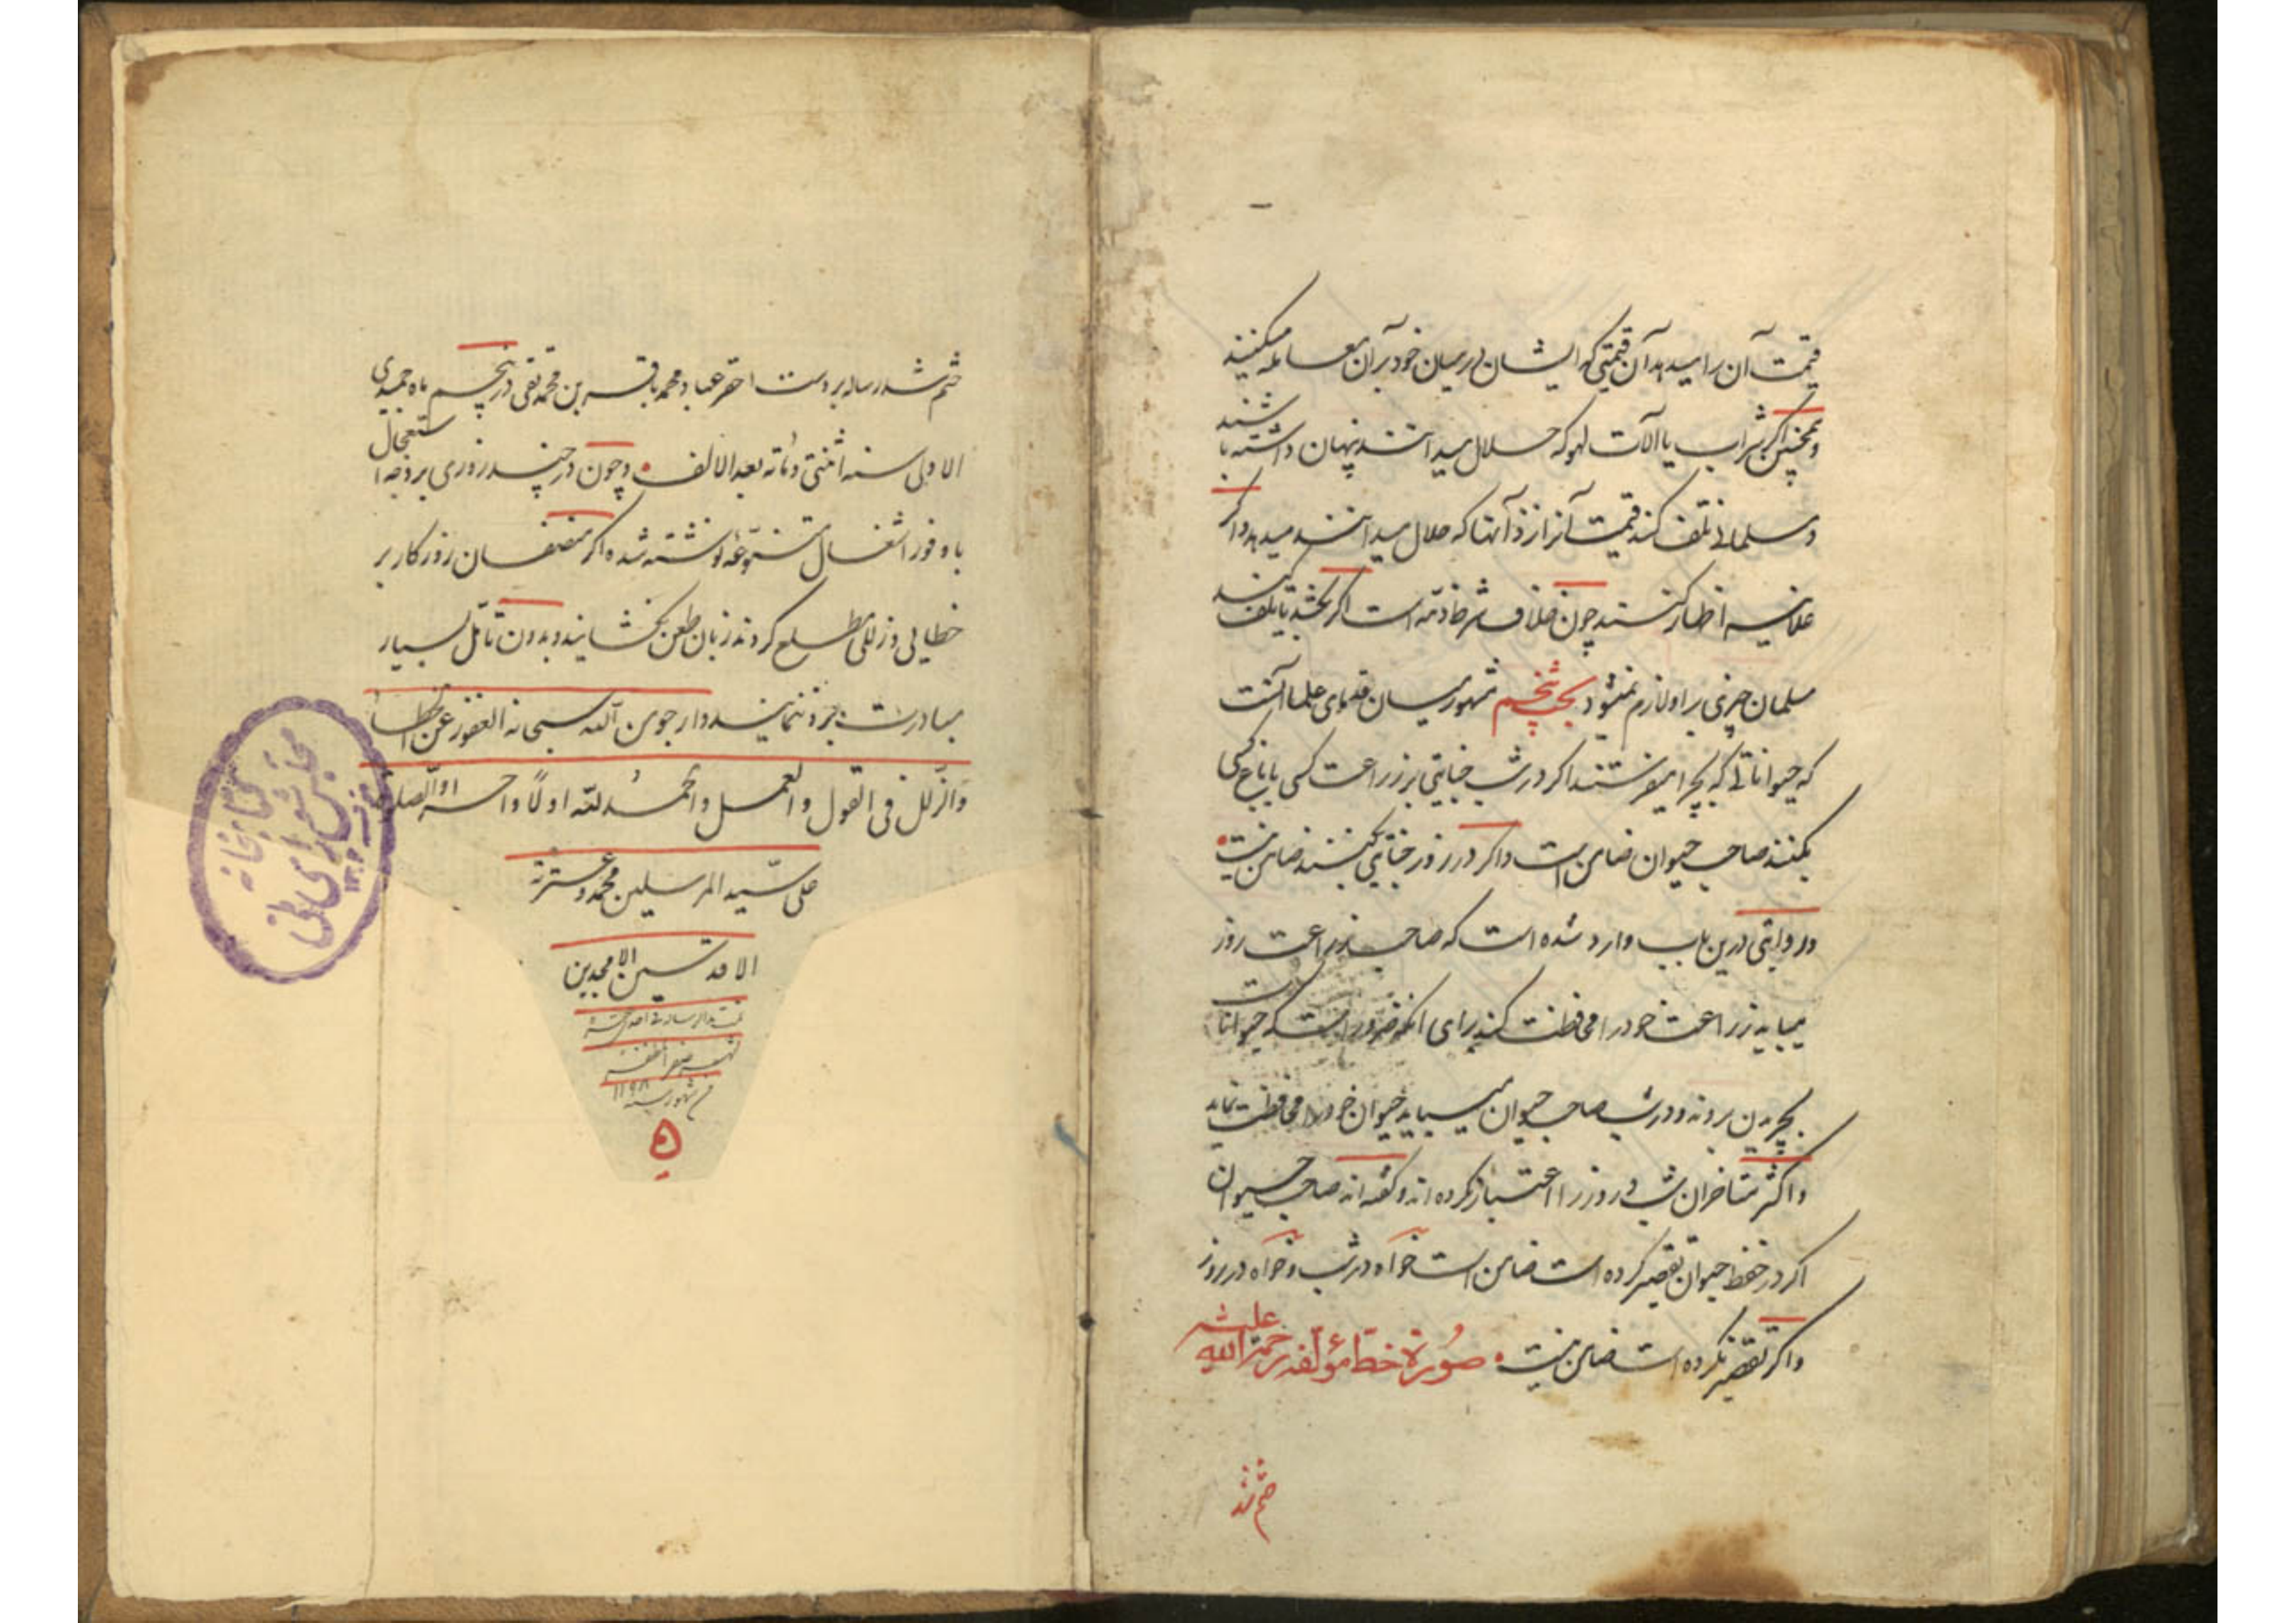 قیمت آن را میدهد آن قیمتی که ایشان در میان خود بر آن معامله میکنند
و همچنین اگر شراب یا آلات لهو که حلال میدانند پنهان داشته باشند
و مسلمانی تلف کند قیمت آنرا نزد آنها که حلال میدانند میدهد و اگر
علانیه اظهار کنند چون خلاف شرط ذمّه است اگر تلف کند
مسلمان چیزی بر او لازم نمیشود بحث پنجم مشهور میان قدمای علما آنست
که حیواناتی که بچرا میفرستند اگر در شب جنایتی بر زراعت کسی یا باغ کسی
بکنند صاحب حیوان ضامن است و اگر در روز جنایتی بکنند ضامن نیست
و روایتی درین باب وارد شده است که صاحب زراعت روز
میباید زراعت خود را محافظت کند برای آنکه ضرور است که حیوانات
بچریدن بروند و در شب صاحب حیوان میباید حیوان خود را محافظت نماید
و اکثر متاخران شب و روز را اعتبار نکرده اند و گفته اند صاحب حیوان
اگر در حفظ حیوان تقصیر کرده است ضامن است خواه در شب و خواه در روز
و اگر تقصیر نکرده است ضامن نیست صورة خط مؤلفه رحمة الله علیه
ختم شد
ختم شد رساله بر دست احقر عباد محمد باقر بن محمد تقی در پنجم ماه جمیدی
الاولی سنه اثنتی و مأته بعد الالف و چون در چند روزی بر وجه استعجال
با وفور اشغال متنوّعه نوشته شده اگر منصفان روزکار بر
خطایی و زللی مطلع کردند زبان طعن نکشایند و بدون تأمّل بسیار
مبادرت برد ننمایند و ارجو من الله سبحانه العفو عن الخطا
والزّلل فی القول والعمل والحمد لله اولاً و آخراً والصلوة
علی سیّد المرسلین محمد و عترته
الاقدسین الامجدین
شهر صفر المظفر
من شهور سنه ۱۱۹۸
۵
کتابخانه
مجلس شورای ملی